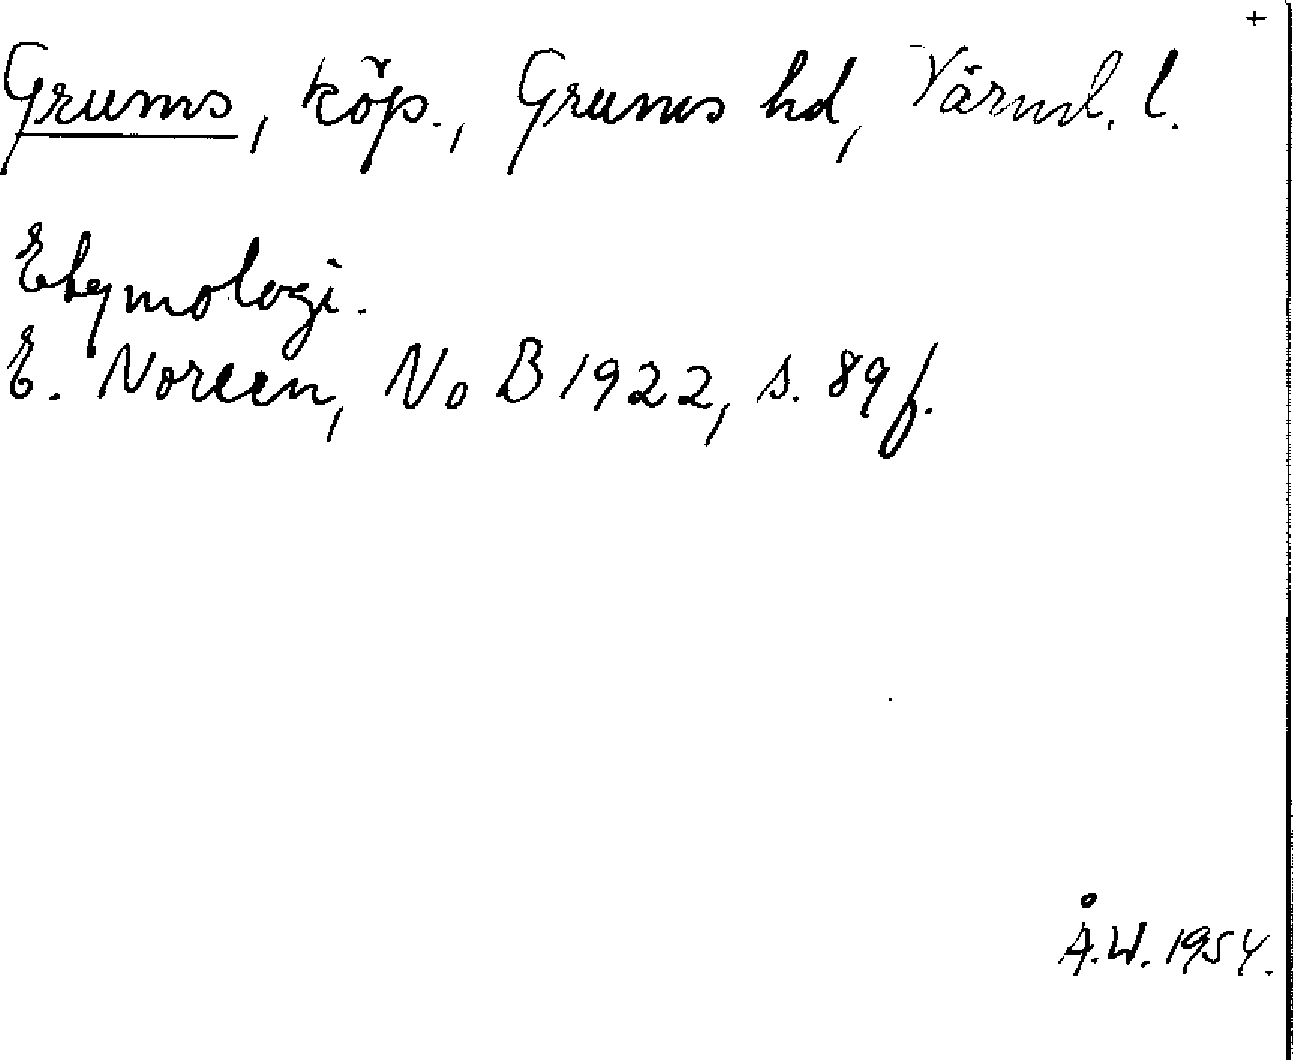 +
Grums, köp., Grums hd, Värml. l.
Etymologi.
E. Noreen, NoB 1922, s. 89 f.
Å.W. 1954.